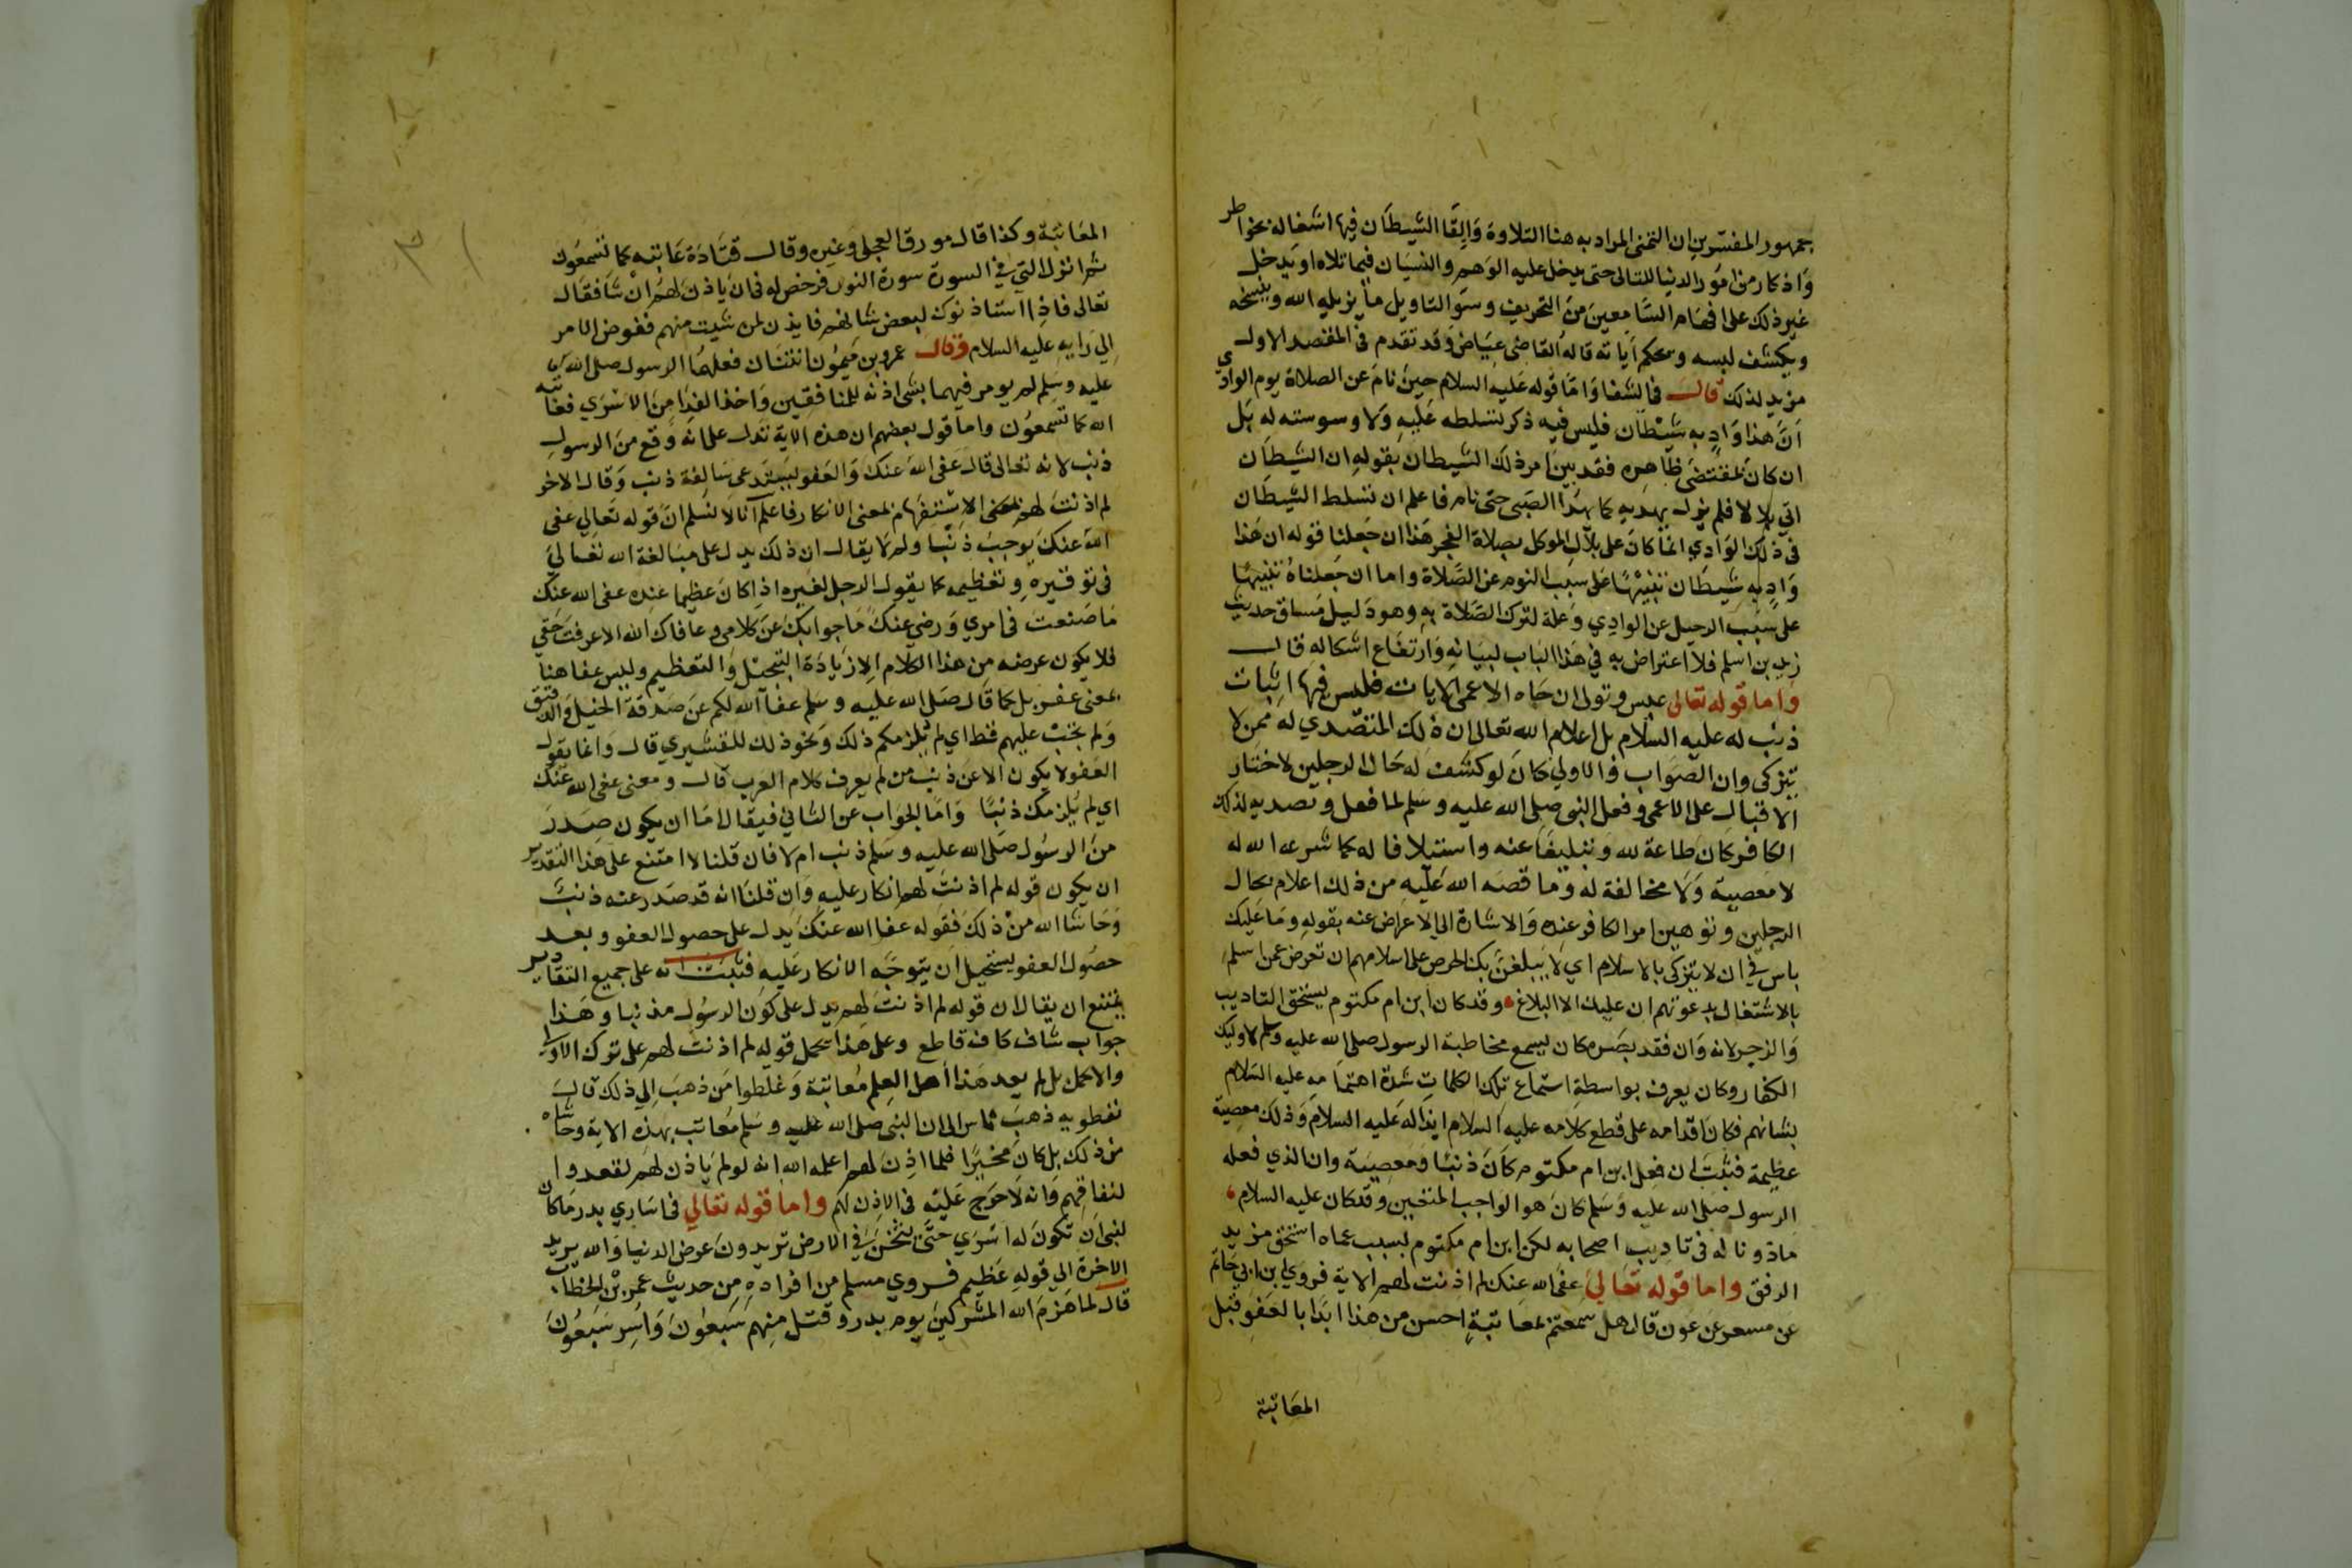 جمهور المفسرين ان التمنى المراد به هنا التلاوة وَالِقَا الشيطَان فيها اشغاله بخواطر
وَاذكار من امُور الدنيا للتالى حتى يدخل عليه الوَهم والنسيَان فيما تلاه او يَدخل
غير ذلك على افهَام السَّامعينَ منَ التحريف وسوَ التاويل ما يزيله الله وينسخه
ويكشف لبسه ويحكم اَياته قالهُ القاضى عيَاض وَقد تقدم فى المقصد الاول
مزيد لذلك قالَ فى الشفا وَامَّا قوله عَليه السلام حينَ نامَ عن الصلاة يوم الوادي
اَنَّ هذا وَادٍ به شيْطان فليس فيه ذكر تسلطه عَليهِ وَلا وسوسته له بَل
ان كان بمقتضى ظاهره فقد بينَ امر ذلك الشيطان بقولهِ ان الشيطَان
اتي بلالا فلم يزل يهديه كما يهدَا الصَبى حتى نام فاعلم ان تسلط الشيطَان
فى ذلك الوَادي انما كانَ على بلاَلٍ الموكل بصلاة الفجر هَذا ان جَعلنا قوله ان هَذا
وَادٍ به شيطَان تنبيْهًا عَلى سبب النوم عن الصَّلاة واما ان جَعلناهُ تنبيهًا
على سبَب الرحيل عن الوادِي وَعلة لترك الصَلاة بهِ وهو دَليل مَساق حديث
زيد بن اسلم فلا اعتراض به في هَذا البَاب لبيَانهِ وَارتفَاع اشكاله قال
وَاما قوله تعَالى عبس وتولى ان جَاه الاعمى الايات فليس فيها اثبات
ذنب له عليه السَلام بل اعلام الله تعالى ان ذلك المتصّدي لهُ ممن لا
يتزكى وان الصَوَاب وَالاولي كانَ لو كشف له حَال الرجلين لاختَار
الاقبال على الاعمى وفعل النبى صلى الله عليه وسَلم لما فعل وتصديه لذلك
الكافر كان طَاعة لله وَتبليغًا عنه واستيلافا له كما شرعه الله له
لا مَعصيَة وَلا مخالفة له وَما قصَه الله عَليه من ذلك اعلام بحال
الرجلين وتوهين امر الكافر عنده وَالاشارة الي الاعراض عنه بقوله ومَا عَليك
باس في ان لا يتزكى بالاسلام اي لا يَبلغنَّ بك الحرص على اسلامهم ان تعرض عمن اسلم
بالاشتغال بدعوتهم ان عليك الا البلاغ وقد كان ابن ام مكتوم يستحق التاديب
وَالزجر لانه وَان فقد بصَره كان يسمع مخاطبة الرسول صلى الله عليه وسلم لاوليك
الكفار وكان يعرف بواسطةِ استماع تلك الكلماتِ شدة اهتمَامه عليه السَلام
بشانهم فكانَ اقدامه على قطع كلامه عليه السلام ايذا له عَليه السلام وَذلك معصية
عظيمة فثبتَ ان فعل ابن ام مكتوم كانَ ذنبًا ومعصِيَة وان الذي فعله
الرسول صَلى الله عليه وَسَلم كانَ هو الواجب المتعين وقد كان عليه السلام
مَاذونا له فى تاديب اصحابه لكن ابن ام مكتوم بسبب عماه استحق مزيد
الرفق واما قوله تعَالىَ عفَى الله عنك لم اذنت لهم الاية فروي ابن ابي حَاتم
عن مسعر عن عون قال هل سمعتم بمعَاتبةٍ احسن من هذا ابدَا بالعَفو قبل
المعَاتبة
المعَاتبَة وكذا قال مورق العجلى وَغيره وقال قتَادَة عَاتبَه كما تسمعُون
ثم انزل التي في السورة سورة النور فرخص له فى ان يَاذنَ لهُم انْ شا فقال
تعالى فاذا استاذنوك لبعض شانهم فاذن لمن شيت منهم ففوض الامر
اِلى رَايهِ عليه السلام وقال عمرو بن مَيمُون اثنتَان فعلهُما الرسول صلى الله
عليه وسَلم لم يومر فيهما بشى اذنه للمنافقين وَاخذه الفدَا منَ الاسْرَي فعاتبه
الله كما تسمعُون واما قول بعضهم ان هذه الاية تدل على انه وَقع منَ الرسول
ذنب لانه تعالى قال عَفى الله عنكَ وَالعَفو يستَدعى سَالفة ذنب وَقال الاخر
لم اذنتَ لهم بمعنى الاستفهَام بمعنى الانكار فاعلم اَنا لا نسلم انَ قوله تعَالى عفى
الله عنكَ يوجب ذنْبًا ولم لا يقال ان ذلك يدل على مبَالغة الله تعَالىَ
فى توقيره وتعْظيمه كما يقول الرجل لغيره اذا كانَ عظيما عنده عفى الله عنك
مَا صَنعتَ فى امري وَرضي عنكَ مَا جوابكَ عَن كلامى وعافاك الله الا عرفتَ حَقي
فلا يكون غرضه من هذا الكلام الا زيَادَة التبجيْل وَالتعظيم وليس عفا هنا
بمعنى غفر بل كما قال صَلى الله عليه وسَلم عفا الله لكم عَن صَدقة الخيل وَالرقيق
وَلم تجبْ عليهم قط اي لم يُلزمكم ذلك وَنحو ذلك للقشيري قال وَانما يقول
العَفو لا يكون الا عَن ذنب من لم يعرف كلام العرب قال ومعنى عفى الله عَنكَ
اي لم يُلزمكَ ذنبًا وَامَا الجوَاب عن الثاني فيقال امَا ان يكون صدر
منَ الرسُول صَلى الله عليه وَسَلم ذنب ام لا فان قلنا لا امتنع على هَذا التقدير
ان يكون قوله لم اذنتَ لهم انكار عليهِ وَان قلنَا انه قد صَدر عنه ذنبٌ
وَحَاشا الله منْ ذلكَ فقوله عفا الله عنكَ يَدل على حصول العفو وبعد
حصُول العفو يستحيل ان يتوجَه الانكار عَليه فثبت انه على جميع التقادير
يمتنع ان يقال ان قوله لم اذنتَ لهم يدل على كون الرسُول مذنبا وهَذا
جوَاب شاف كاف قاطع وعلى هَذا يحمل قوله لم اذنتَ لهم على ترك الاولى
والاكمل بل لم يعد هَذا أهل العِلم مُعَاتبَة وَغلطوا مَن ذهبَ اِلي ذلك قالَ
نفطويه ذهبَ ناس الى ان النبى صلى الله عليه وسَلم مُعَاتب بهذه الاية وحَاشاه
من ذلك بل كانَ مخيَّرا فلما اذِنَ لهم اعلمه الله انه لو لم يَاذن لهم لقعدوا
لنفاقِهم وَانه لا حَرجَ عَليه فى الاذن لهَم واما قوله تعَالي فى اسَارِي بدر مَا كانَ
لنبى اَن تكونَ له اسْرَي حتىَ يثخنَ في الارض تريدونَ عرض الدنيا وَالله يريد
الاخرة الي قولهِ عَظيم فروي مسلم من افرادهِ من حديث عمر بن الخطاب
قال لما هَزمَ الله المشركينَ يوم بدر وقتل منهم سَبعُونَ وَاسِر سَبعُونَ